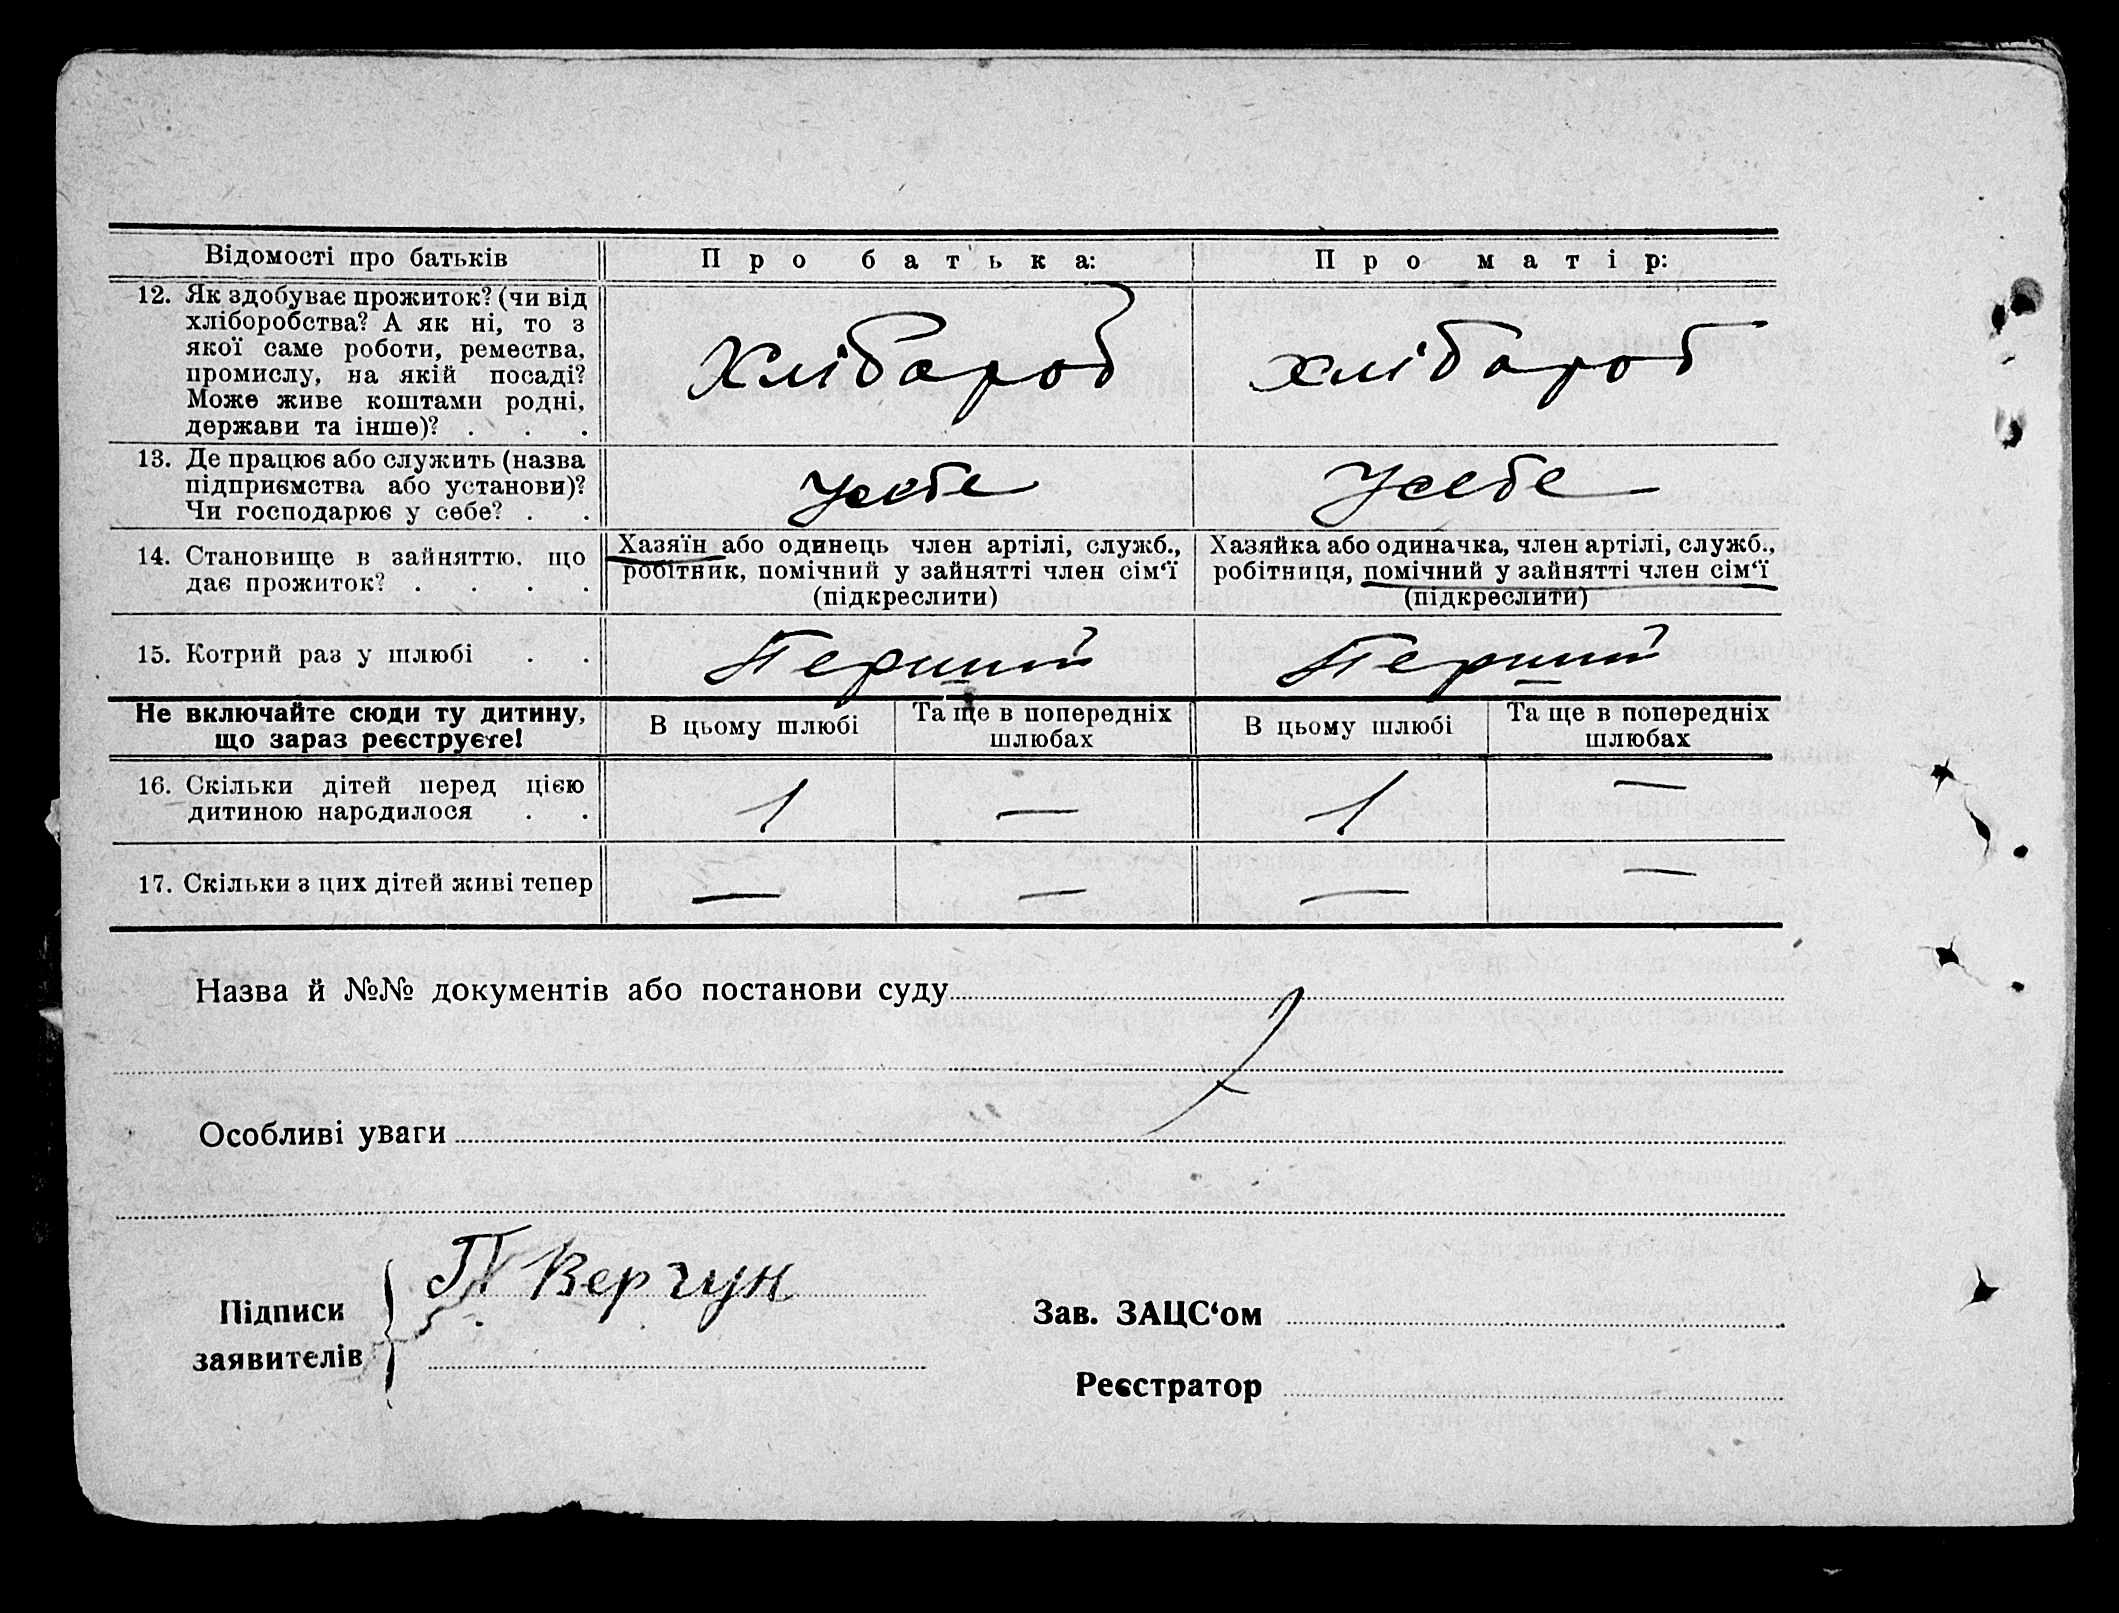 Відомості про батьків Про батька: Про матір:
12. Як здобуває прожиток? (чи від
хліборобства? А як ні, то з
якої саме роботи, ремества,
промислу, на якій посаді?
Може живе коштами родні,
держави та інше)? . . .
Хлібороб хлібороб
13. Де працює або служить (назва
підприємства або установи)?
Чи господарює у себе? . .
У себе У себе
14. Становище в зайняттю, що
дає прожиток? . . . .
Хазяїн або одинець член артілі, служб.,
робітник, помічний у зайнятті член сім'ї
(підкреслити)
Хазяйка або одиначка, член артілі, служб.,
робітниця, помічний у зайнятті член сім'ї
(підкреслити)
15. Котрий раз у шлюбі . . Перший Перший
Не включайте сюди ту дитину,
що зараз реєструєте!
В цьому шлюбі
Та ще в попередніх
шлюбах
В цьому шлюбі
Та ще в попередніх
шлюбах
16. Скільки дітей перед цією
дитиною народилося . .
1 — 1 —
17. Скільки з цих дітей живі тепер — — — —
Назва й №№ документів або постанови суду
Особливі уваги
Підписи
заявителів
П Верчун
Зав. ЗАЦС'ом
Реєстратор